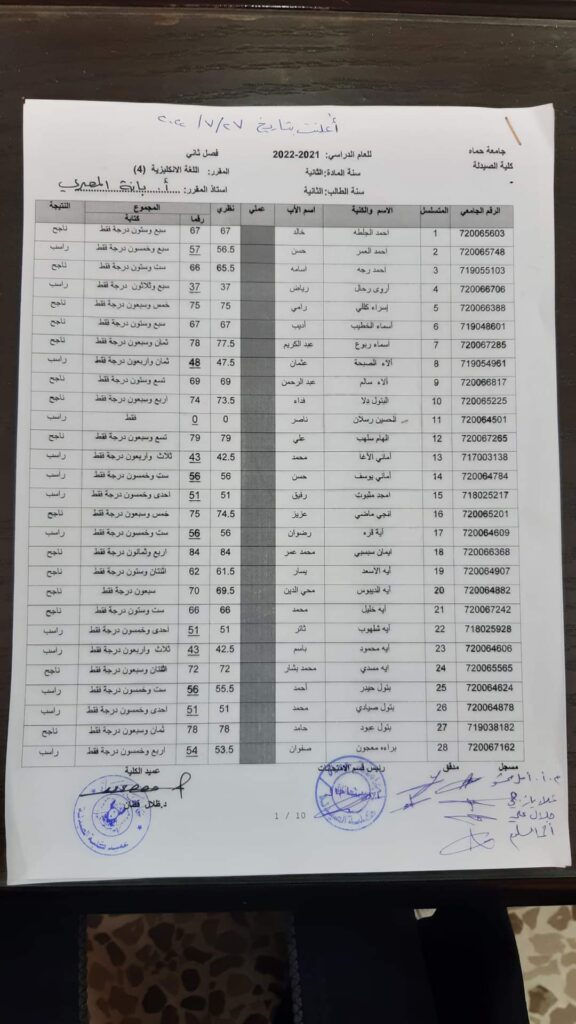 أعلنت بتاريخ ٢٧/٧/٢٠٢٢
جامعة حماه للعام الدراسي: 2021-2022 فصل ثاني
كلية الصيدلة سنة المادة: الثانية المقرر: اللغة الانكليزية (4)
سنة الطالب: الثانية أستاذ المقرر: أ. بانة المصري
الرقم الجامعي المتسلسل الاسم والكنية اسم الأب عملي نظري المجموع النتيجة
رقما كتابة
720065603 1 احمد الجلطه خالد 67 67 سبع وستون درجة فقط ناجح
720065748 2 احمد العمر حسن 56.5 57 سبع وخمسون درجة فقط راسب
719055103 3 احمد رجه اسامه 65.5 66 ست وستون درجة فقط ناجح
720066706 4 أروى رحال رياض 37 37 سبع وثلاثون درجة فقط راسب
720066388 5 إسراء ككلي رامي 75 75 خمس وسبعون درجة فقط ناجح
719048601 6 أسماء الخطيب أديب 67 67 سبع وستون درجة فقط ناجح
720067285 7 اسماء ربوع عبد الكريم 77.5 78 ثمان وسبعون درجة فقط ناجح
719054961 8 آلاء الصبحة عثمان 47.5 48 ثمان واربعون درجة فقط راسب
720066817 9 آلاء سالم عبد الرحمن 69 69 تسع وستون درجة فقط ناجح
720065225 10 البتول دلا فداء 73.5 74 اربع وسبعون درجة فقط ناجح
720064501 11 الحسين رسلان ناصر 0 0 فقط راسب
720067265 12 الهام سلهب علي 79 79 تسع وسبعون درجة فقط ناجح
717003138 13 أماني الأغا محمد 42.5 43 ثلاث واربعون درجة فقط راسب
720064784 14 أماني يوسف حسن 56 56 ست وخمسون درجة فقط راسب
718025217 15 امجد مثبوت رفيق 51 51 احدى وخمسون درجة فقط راسب
720065201 16 انجي ماضي عزيز 74.5 75 خمس وسبعون درجة فقط ناجح
720064609 17 آية قره رضوان 56 56 ست وخمسون درجة فقط راسب
720066368 18 ايمان سبسبي محمد عمر 84 84 اربع وثمانون درجة فقط ناجح
720064907 19 آيه الاسعد يسار 61.5 62 اثنتان وستون درجة فقط ناجح
720064882 20 آيه الدبيوس محي الدين 69.5 70 سبعون درجة فقط ناجح
720067242 21 آيه خليل محمد 66 66 ست وستون درجة فقط ناجح
718025928 22 آيه شلهوب ثائر 51 51 احدى وخمسون درجة فقط راسب
720064606 23 آيه محمود باسم 42.5 43 ثلاث واربعون درجة فقط راسب
720065565 24 ايه مسدي محمد بشار 72 72 اثنتان وسبعون درجة فقط ناجح
720064624 25 بتول حيدر أحمد 55.5 56 ست وخمسون درجة فقط راسب
720064878 26 بتول صيادي محمد 51 51 احدى وخمسون درجة فقط راسب
719038182 27 بتول عبود حامد 78 78 ثمان وسبعون درجة فقط ناجح
720067162 28 براءه معجون صفوان 53.5 54 اربع وخمسون درجة فقط راسب
مسجل مدقق رئيس قسم الامتحانات عميد الكلية
1 / 10